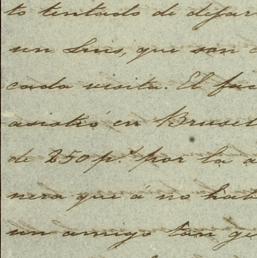 to tentado de dejar
un Luis, que son c
cada visita. El fac
asistió en Brusel
de 250 p.s por la a
nera que á no hab
un amigo tan ge